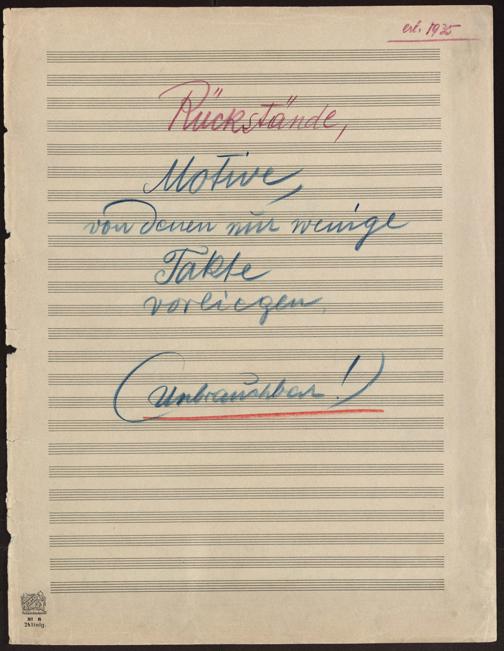 erl. 1935
Rückstände,
Motive,
von denen nur wenige
Takte
vorliegen.
(Unbrauchbar!)
24linig.